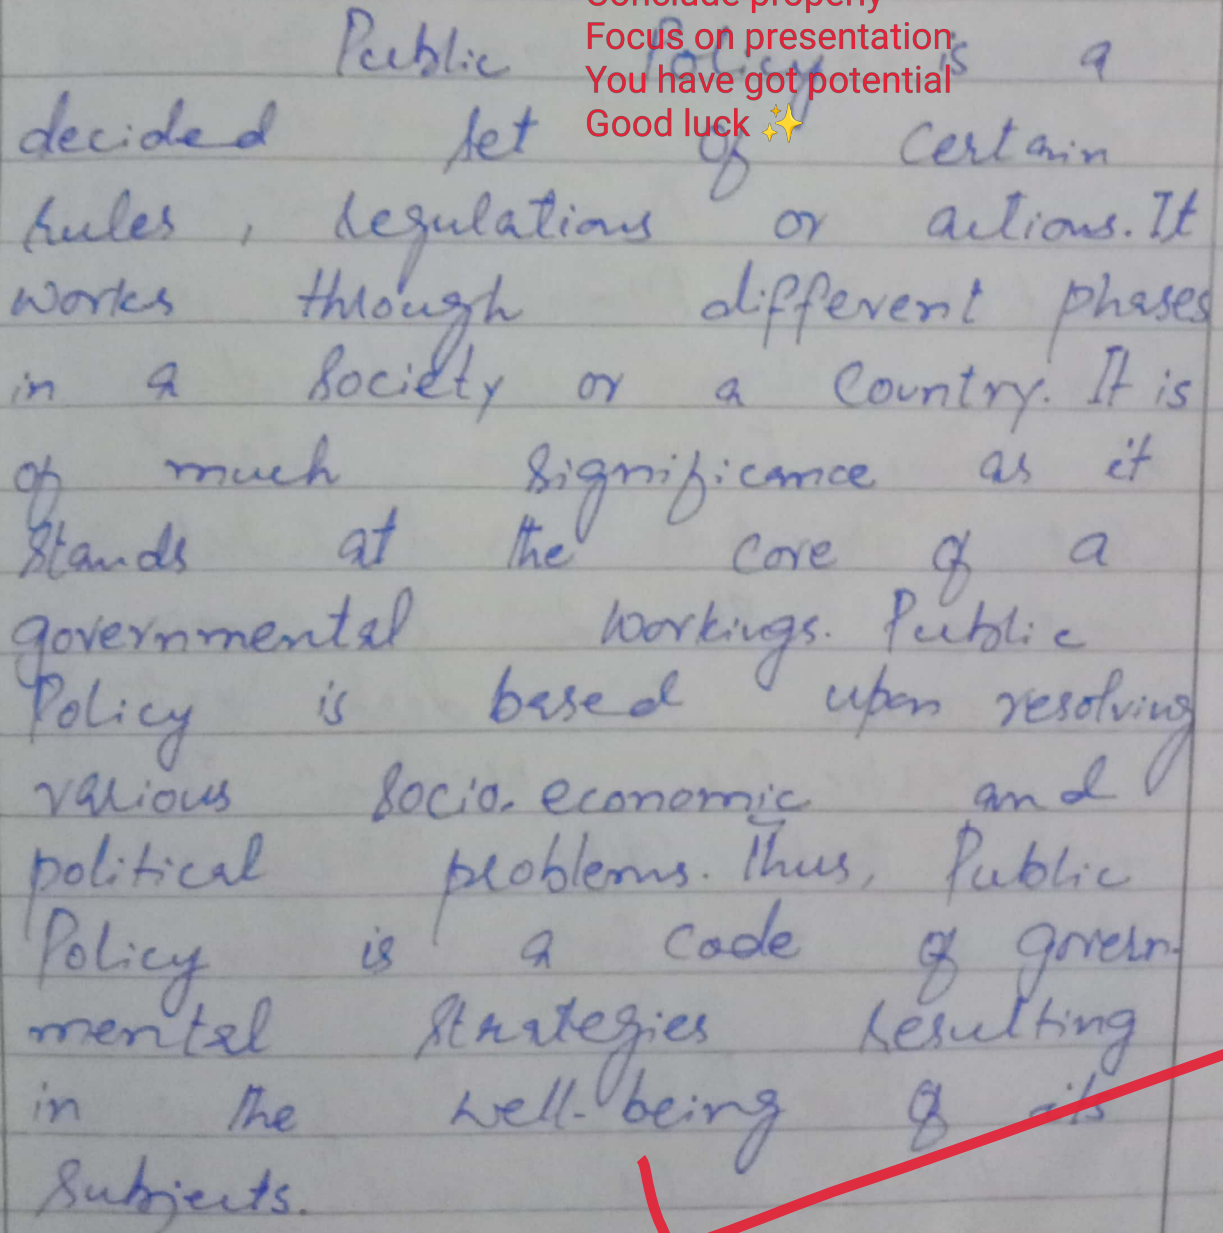 Conclude properly
Focus on presentation
You have got potential
Good luck ✨
Public Policy is a
decided set of certain
rules, regulations or actions. It
works through different phases
in a society or a country. It is
of much significance as it
stands at the core of a
governmental workings. Public
Policy is based upon resolving
various socio-economic and
political problems. Thus, Public
Policy is a code of govern-
mental strategies resulting
in the well-being of its
subjects.